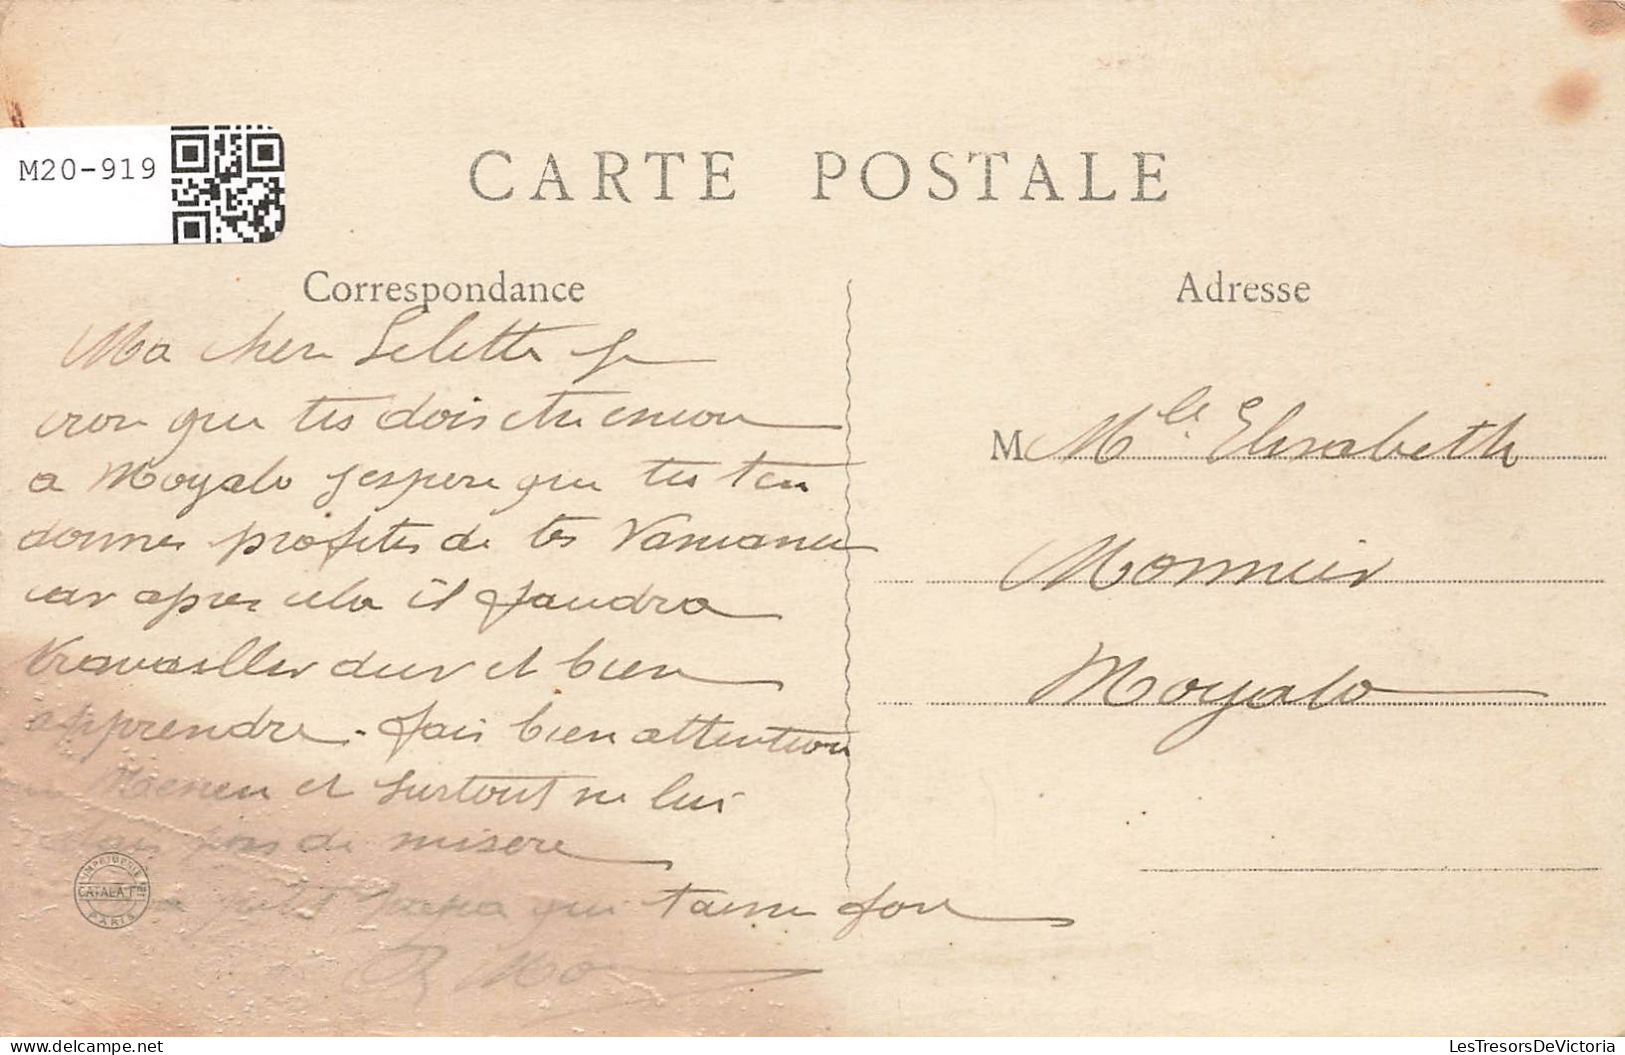 M20-919
CARTE POSTALE
Correspondance
Adresse
Ma cher Lilette je
croi que tu dois etre encor
a Moyalo jespere que tu ten
donnes profites de tes Vancances
car apres cela il faudra
travailler dur et bien
apprendre. fais bien attention
et surtout ne lui
fais pas de misere
petit papa qui taime for
M Mle. Elisabeth
Monnier
Moyalo
IMPRIMERIE
CATALA Fres
PARIS
delcampe.net
LesTresorsDeVictoria